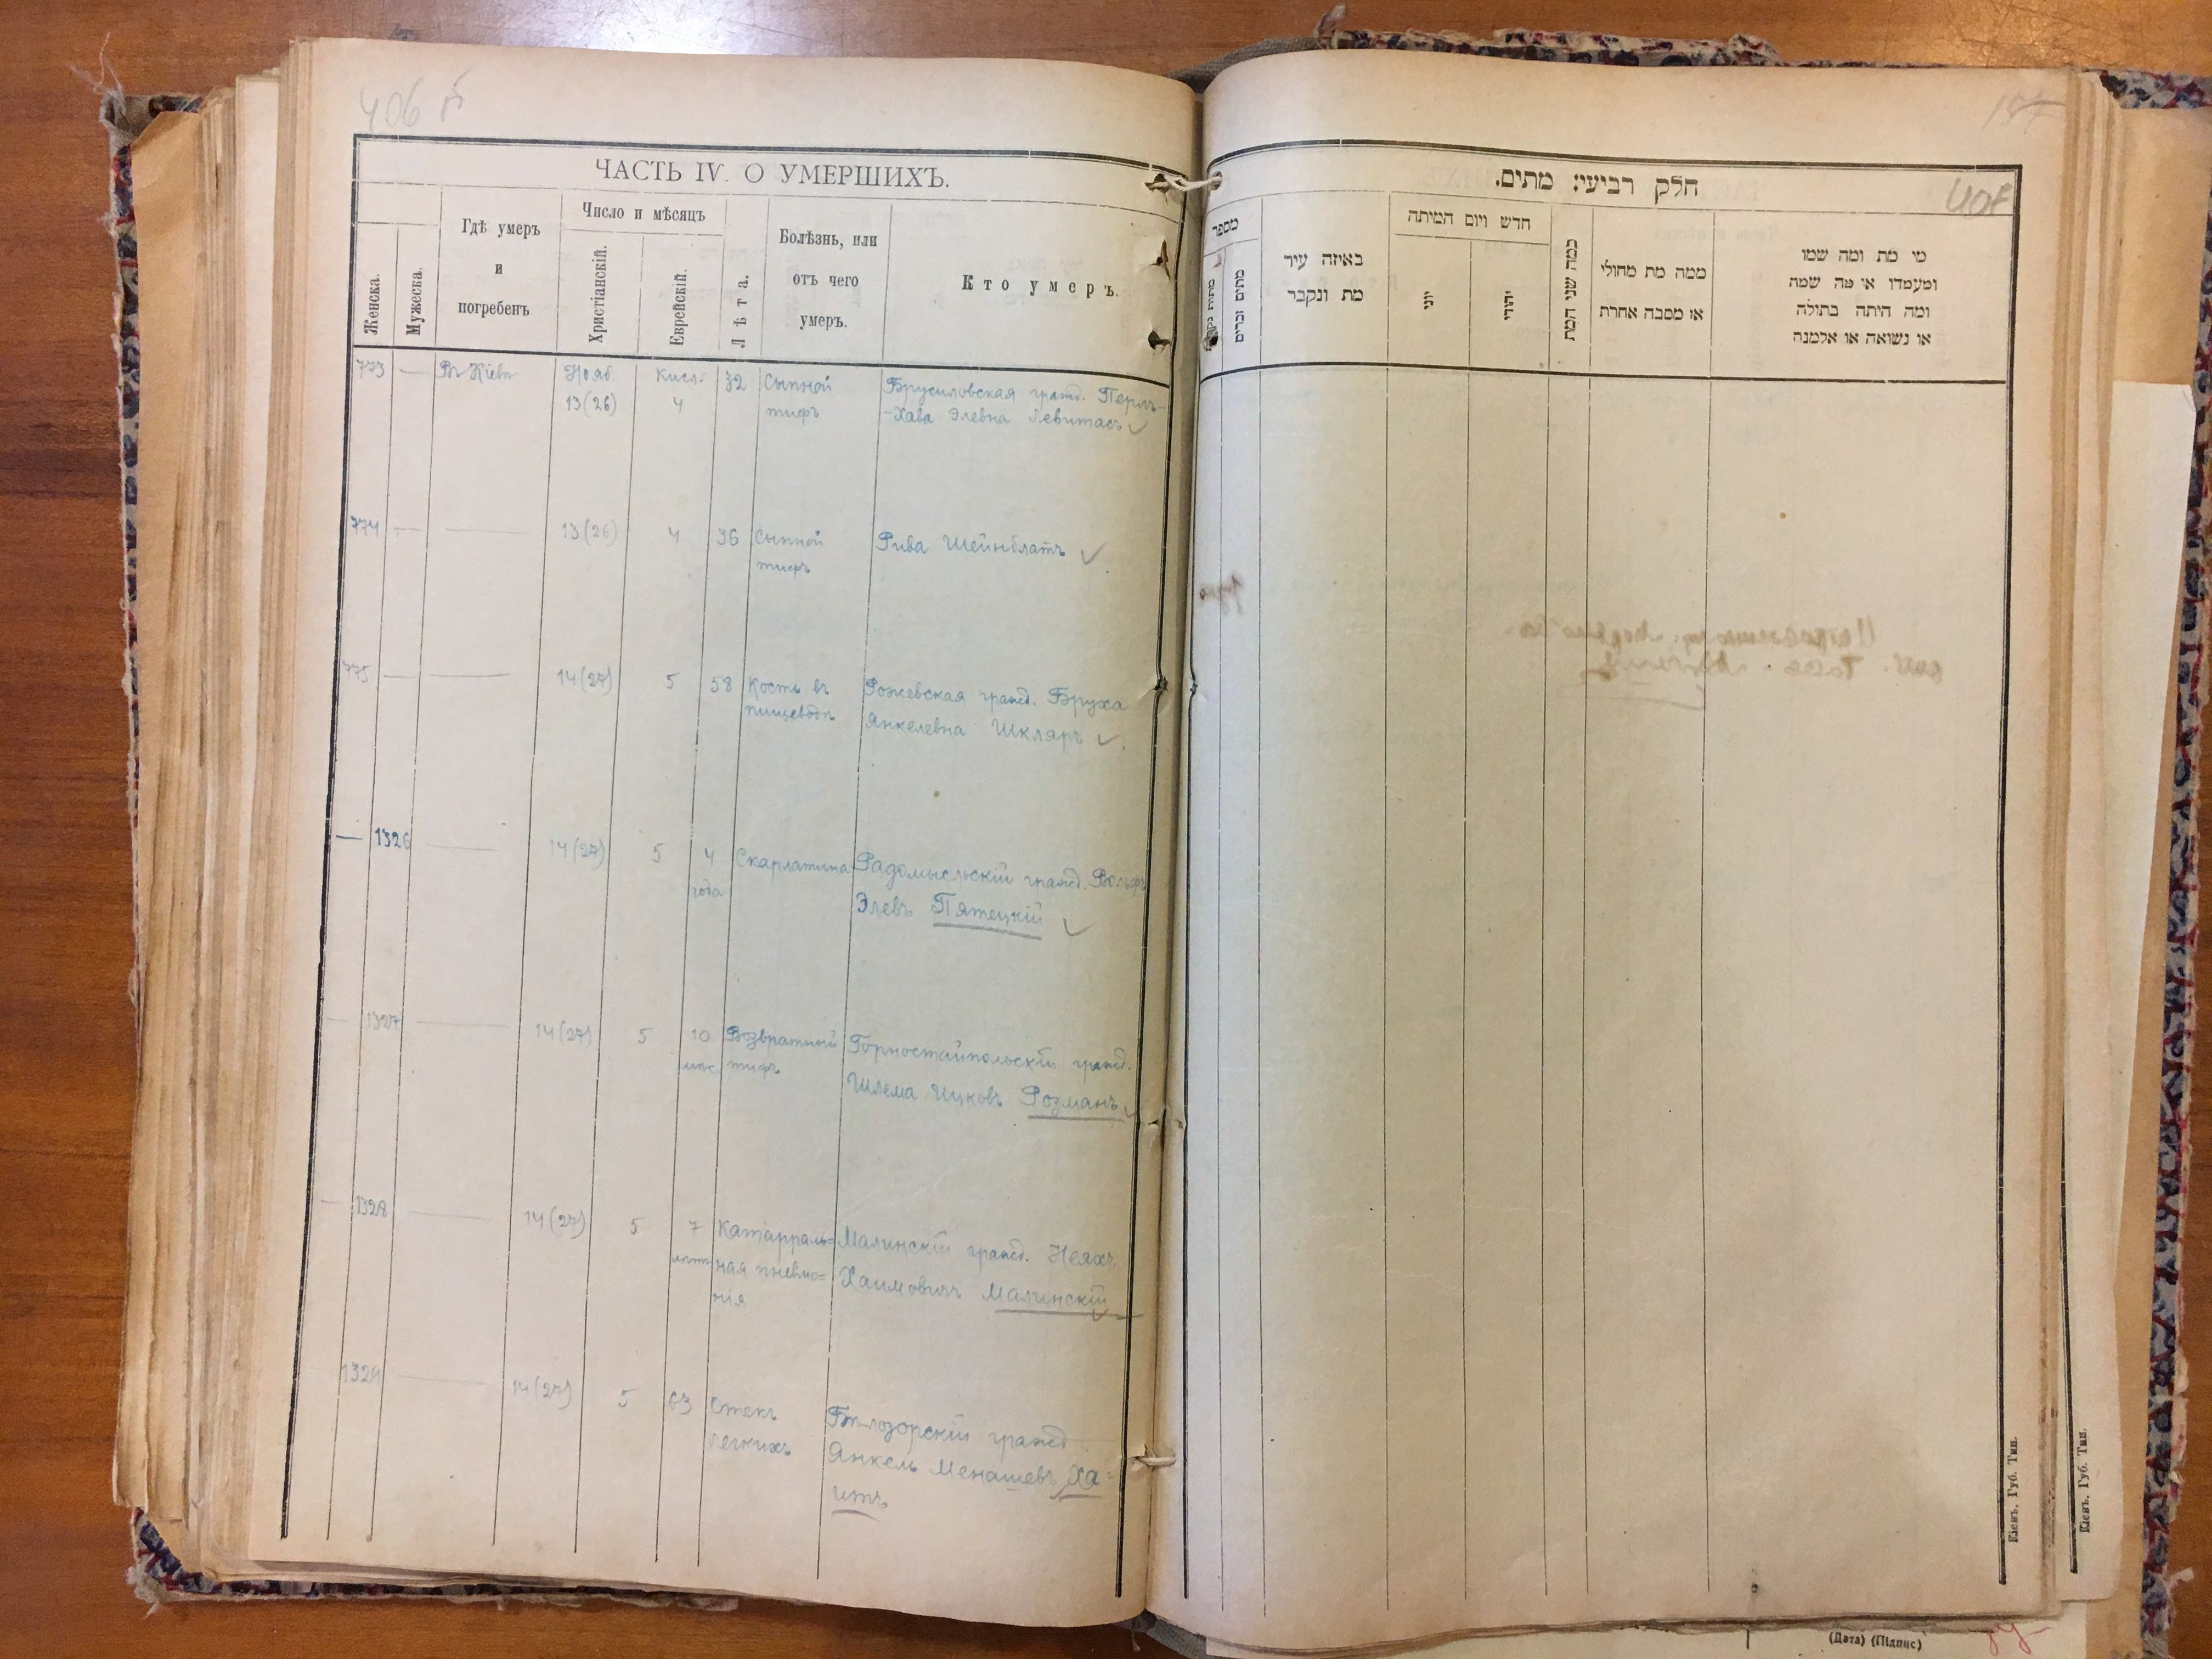 406 б
ЧАСТЬ IV. О УМЕРШИХЪ.
Женска.
Мужеска.
Гдѣ умеръ
и
погребенъ
Число и мѣсяцъ
Христіанскій.
Еврейскій.
Лѣта.
Болѣзнь, или
отъ чего
умеръ.
Кто умеръ.
773 — Въ Кіевѣ Нояб. Кисл. 32 Сыпной Брусиловская гражд. Перль-
13(26) 4 тифъ -Хава Элевна Левитасъ
774 — — 13(26) 4 36 Сыпной Рива Шейнблатъ
тифъ
775 — 14(27) 5 58 Кость въ Рожевская гражд. Бруха
пищеводѣ Янкелевна Шкляръ
— 1326 — 14(27) 5 4 Скарлатина Радомысльскій гражд. Вольфъ
года Элевъ Пятецкій
— 1327 — 14(27) 5 10 Возвратный Горностайпольскій гражд.
мѣс тифъ Шлема Ицковъ Розманъ
— 1328 — 14(27) 5 7 Катарраль= Малинскій гражд.
лѣт ная пневмо= Хаимовичъ Малинскій
нія
1329 — 14(27) 5 63 Отекъ Бѣлозорскій гражд
легкихъ Янкель Менашевъ Ха=
итъ
407
חלק רביעי: מתים.
מספר
מתים זכרים
באיזה עיר
מת ונקבר
חדש ויום המיתה
יוני
יהודי
כמה שני המת
ממה מת מחולי
או מסבה אחרת
מי מת ומה שמו
ומעמדו או מה שמה
ומה היתה בתולה
או נשואה או אלמנה
Кіевъ, Губ. Тип.
Кіевъ, Губ. Тип.
(Дата) (Підпис)